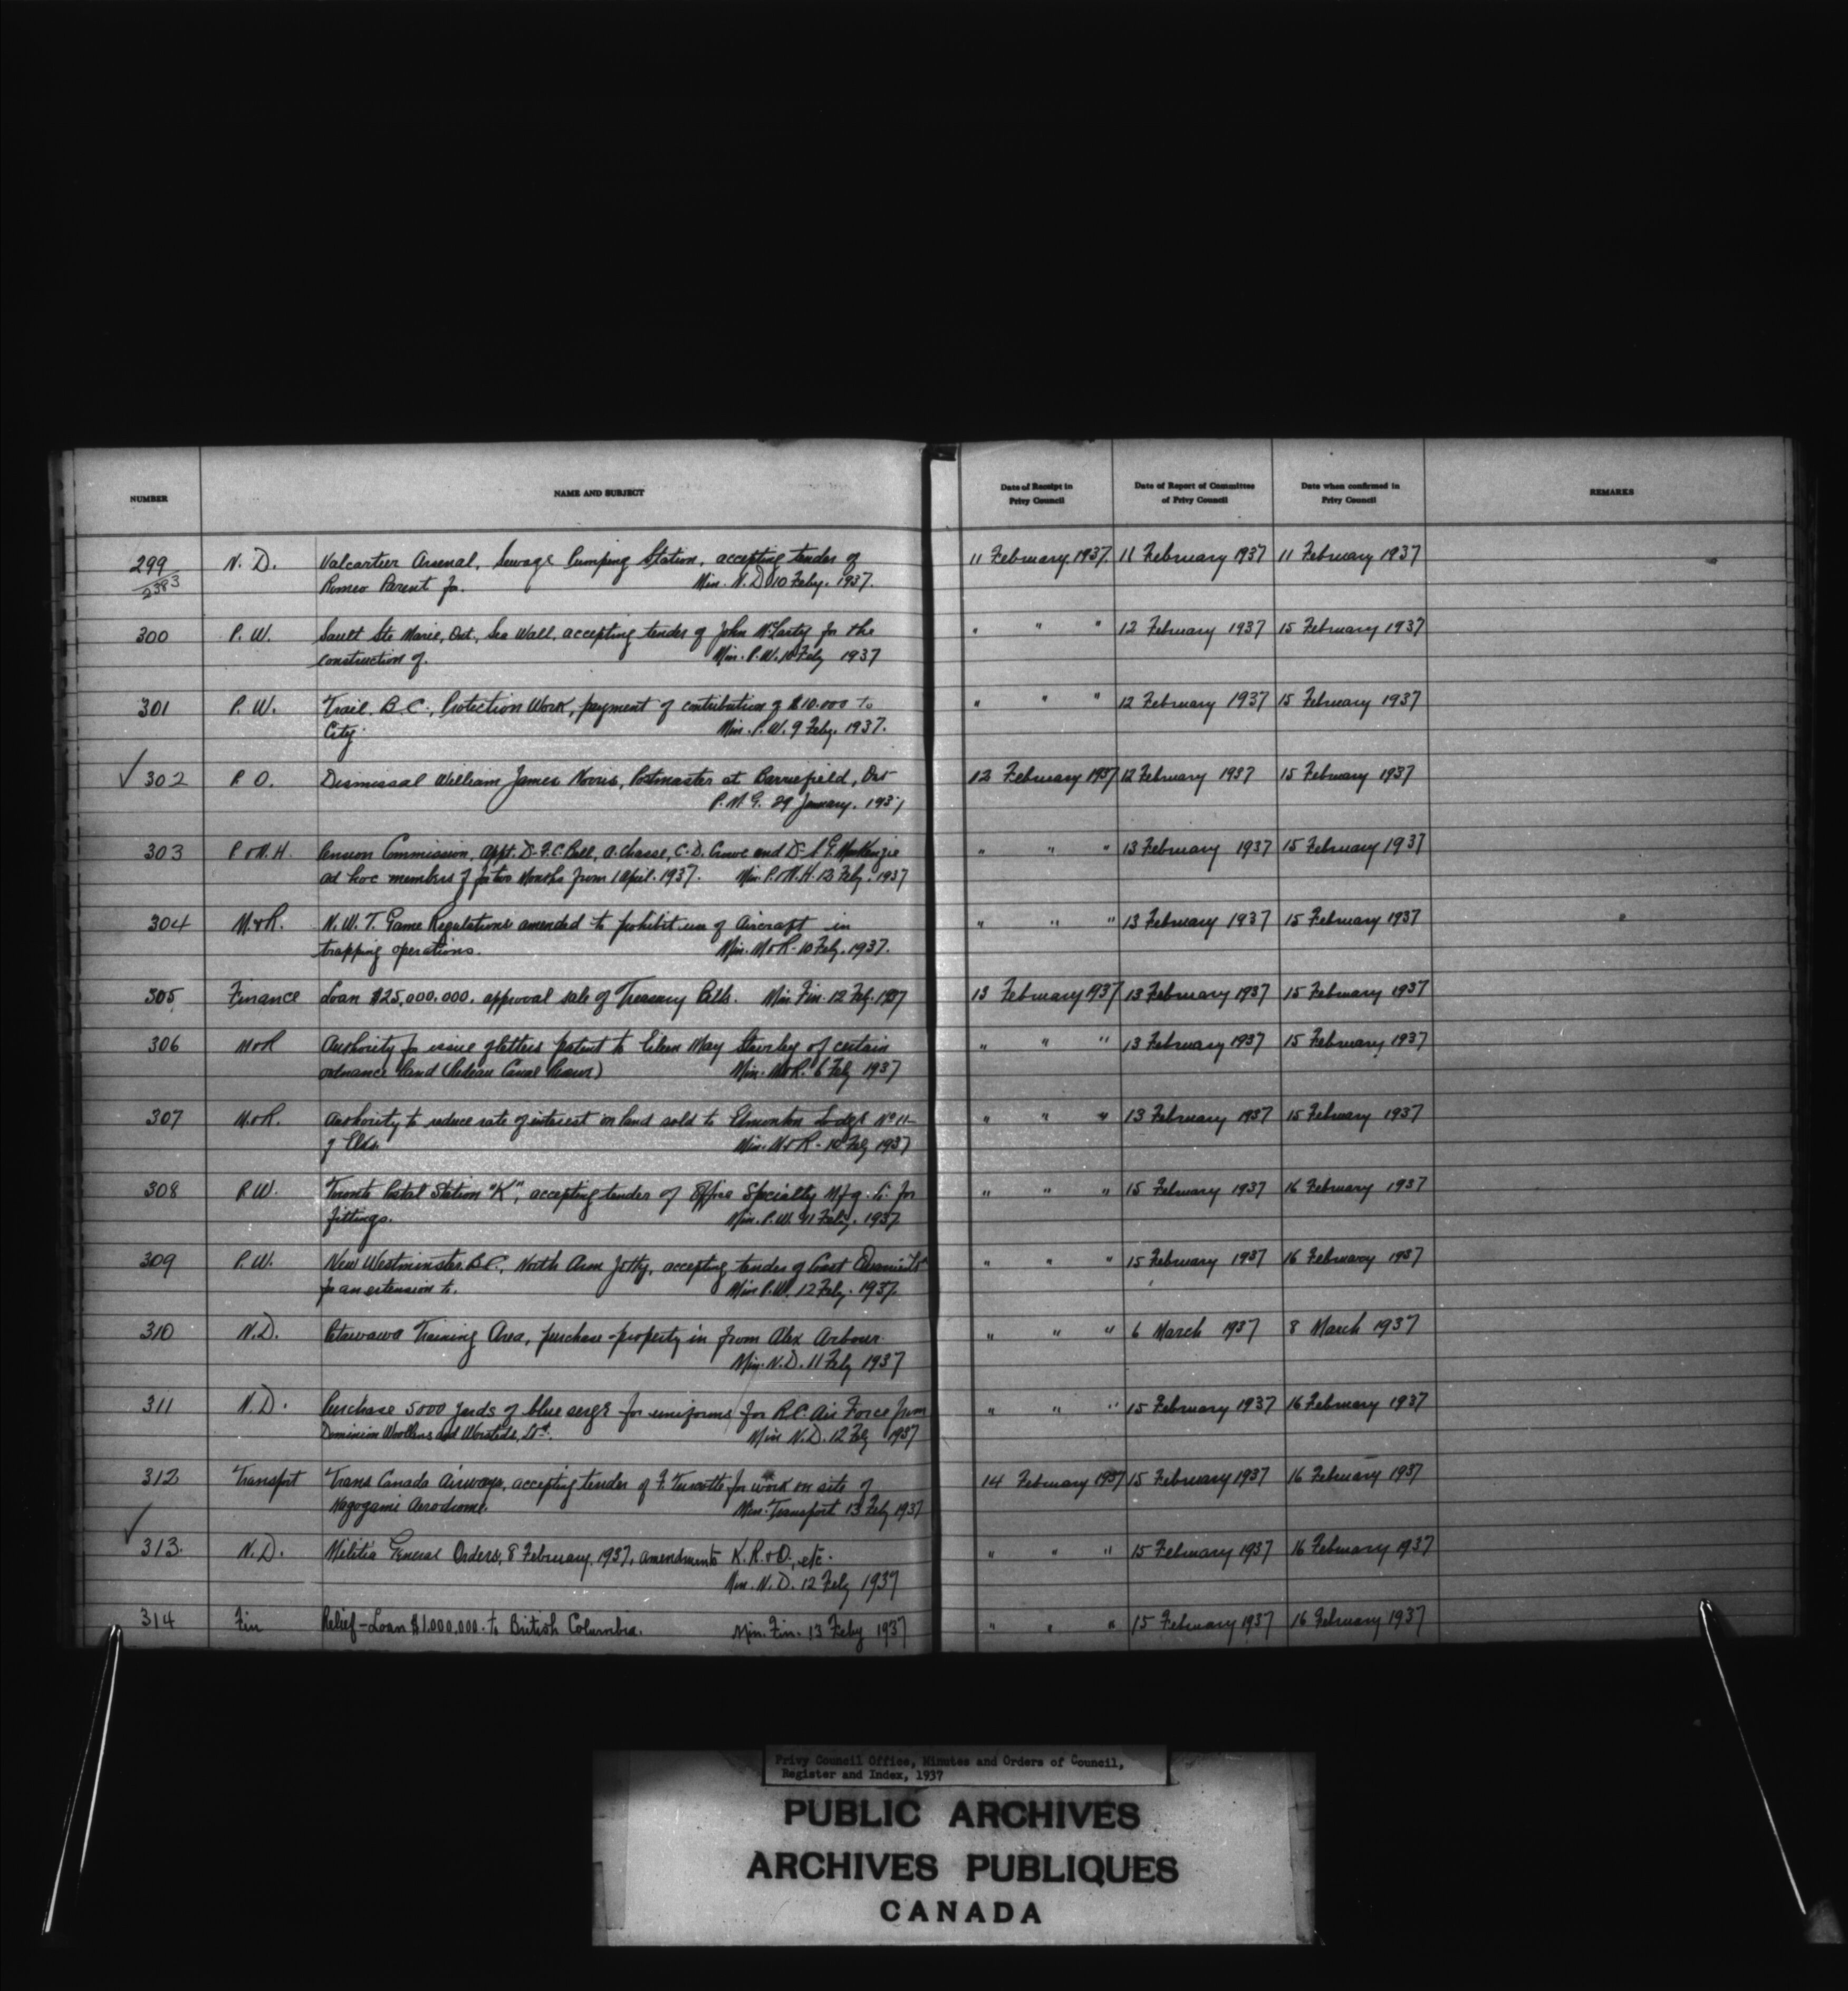 NUMBER NAME AND SUBJECT Date of Receipt in Privy Council Date of Report of Committee of Privy Council Date when confirmed in Privy Council REMARKS
299 N. D. Valcartier Arsenal, Sewage Pumping Station, accepting tender of 11 February 1937. 11 February 1937 11 February 1937
2383 Romeo Parent for. Min. N. D. 10 Feby. 1937.
300 P. W. Sault Ste Marie, Ont, Sea Wall, accepting tender of John McLarty for the " " " 12 February 1937 15 February 1937
construction of. Min. P. W. 10 Feby 1937
301 P. W. Trail, B.C., Protection Work, payment of contribution of $10.000 to " " " 12 February 1937 15 February 1937
City. Min. P. W. 9 Feby. 1937.
✓ 302 P. O. Dismissal William James Norris, Postmaster at Barriefield, Ont 12 February 1937 12 February 1937 15 February 1937
P. M. G. 29 January. 1937
303 P & N. H. Pension Commission, appt. Dr F. C. Bell, A. Chasse, C. D. Crowe and Dr MacKenzie " " " 13 February 1937 15 February 1937
ad hoc members of for two months from 1 April. 1937. Min. P. & N. H. 12 Feby. 1937
304 M. & R. N. W. T. Game Regulations amended to prohibit use of Aircraft in " " " 13 February 1937 15 February 1937
trapping operations. Min. M & R. 10 Feby. 1937.
305 Finance Loan $25,000,000, approval sale of Treasury Bills. Min. Fin. 12 Feb. 1937 13 February 1937 13 February 1937 15 February 1937
306 M & R Authority for issue of letters patent to Eileen May Staveley of certain " " " 13 February 1937 15 February 1937
ordnance land (Rideau Canal Reserve) Min. M & R. 6 Feby 1937
307 M. & R. Authority to reduce rate of interest on land sold to Edmonton Lodge No 11 " " " 13 February 1937 15 February 1937
of Elks. Min. M & R. 10 Feby 1937
308 P. W. Toronto Postal Station "K", accepting tender of Office Specialty Mfg. Co. for " " " 15 February 1937 16 February 1937
fittings. Min. P. W. 11 Feby. 1937
309 P. W. New Westminster B.C., North Arm Jetty, accepting tender of Coast Quarries Ltd " " " 15 February 1937 16 February 1937
for an extension to. Min P. W. 12 Feby. 1937.
310 N. D. Petawawa Training Area, purchase property in from Alex Arbour. " " " 6 March 1937 8 March 1937
Min. N. D. 11 Feby 1937
311 N. D. Purchase 5000 yards of blue serge for uniforms for R.C. Air Force from " " " 15 February 1937 16 February 1937
Dominion Woollens and Worsteds, Ltd. Min N. D. 12 Feby 1937
312 Transport Trans Canada Airways, accepting tender of F. Turcotte for work on site of 14 February 1937 15 February 1937 16 February 1937
Nagogami Aerodrome. Min. Transport 13 Feby 1937
✓ 313. N. D. Militia General Orders, 8 February, 1937, amendments K. R. & O., etc. " " " 15 February 1937 16 February 1937
Min. N. D. 12 Feby 1937
314 Fin Relief - Loan $1,000,000. to British Columbia. Min. Fin. 13 Feby 1937 " " " 15 February 1937 16 February 1937
Privy Council Office, Minutes and Orders of Council,
Register and Index, 1937
PUBLIC ARCHIVES
ARCHIVES PUBLIQUES
CANADA